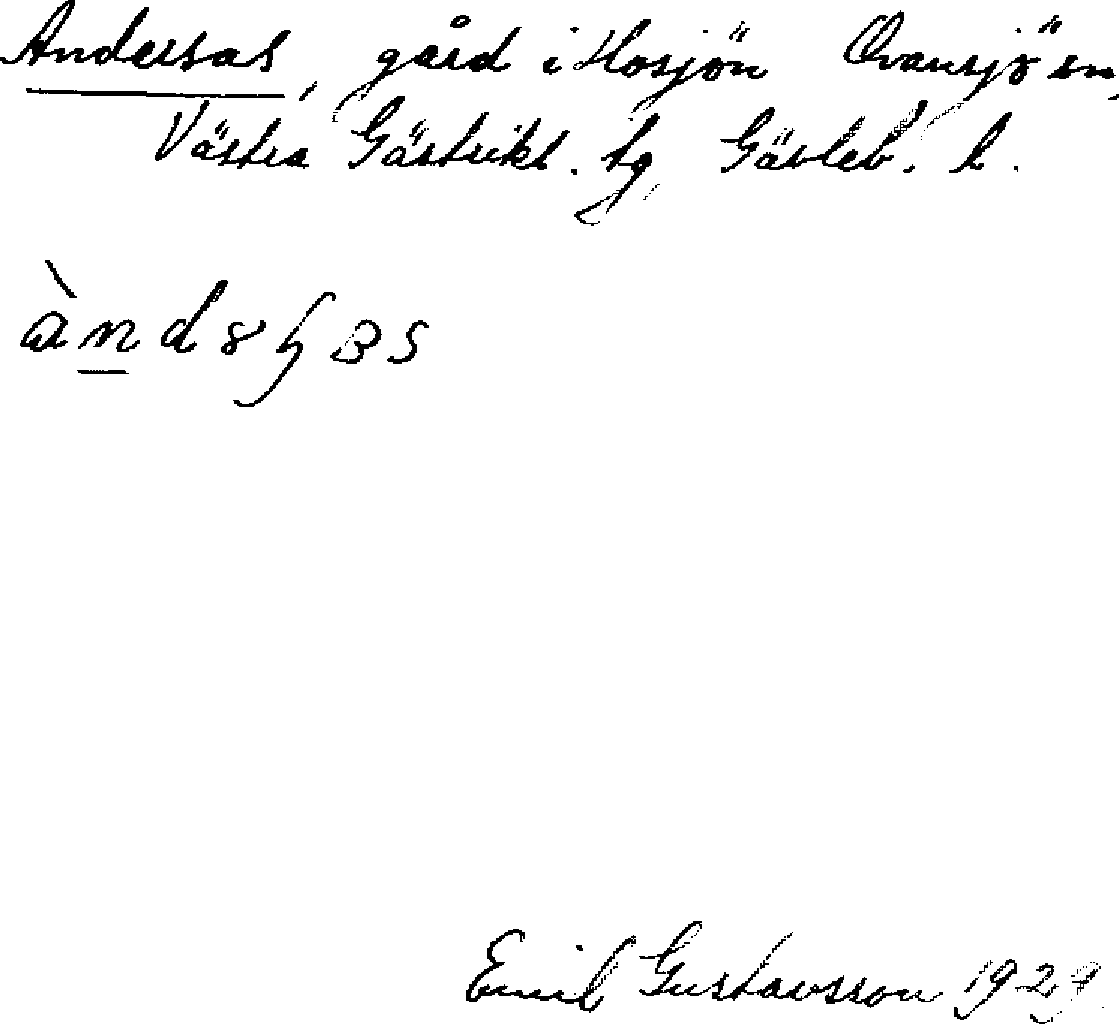 Andersas, gård i Hosjön Ovansjö sn,
Västra Gästrikl. tg, Gävleb. l.
Emil Gustavsson